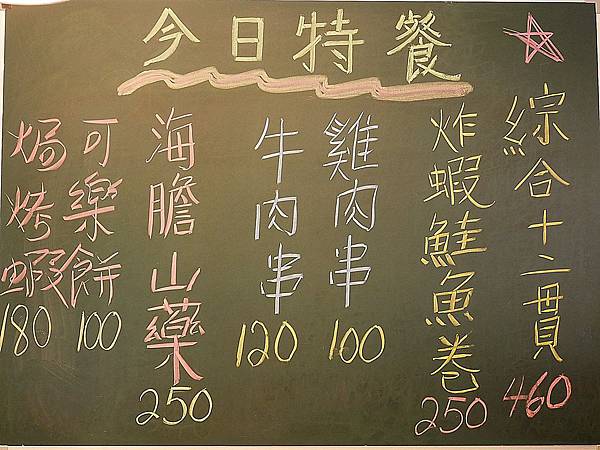 今日特餐
綜合十二貫460
炸蝦鮭魚卷250
雞肉串100
牛肉串120
海膽山藥250
可樂餅100
焗烤蝦180